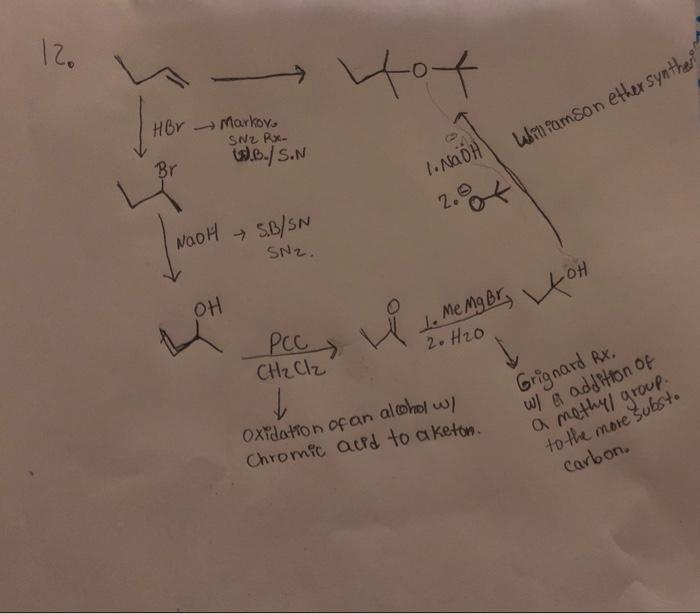 12.
O
HBr → Markov.
SN2 Rx-
W.B./S.N
Br
NaOH → S.B/SN
SN2.
OH
PCC
CH2Cl2
Oxidation of an alcohol w/
chromic acid to a keton.
O
1. MeMgBr
2. H2O
OH
Grignard Rx.
w/ a addition of
a methyl group.
to the more subst.
carbon.
1. NaOH
2. ⊖O
Williamson ether synthesis